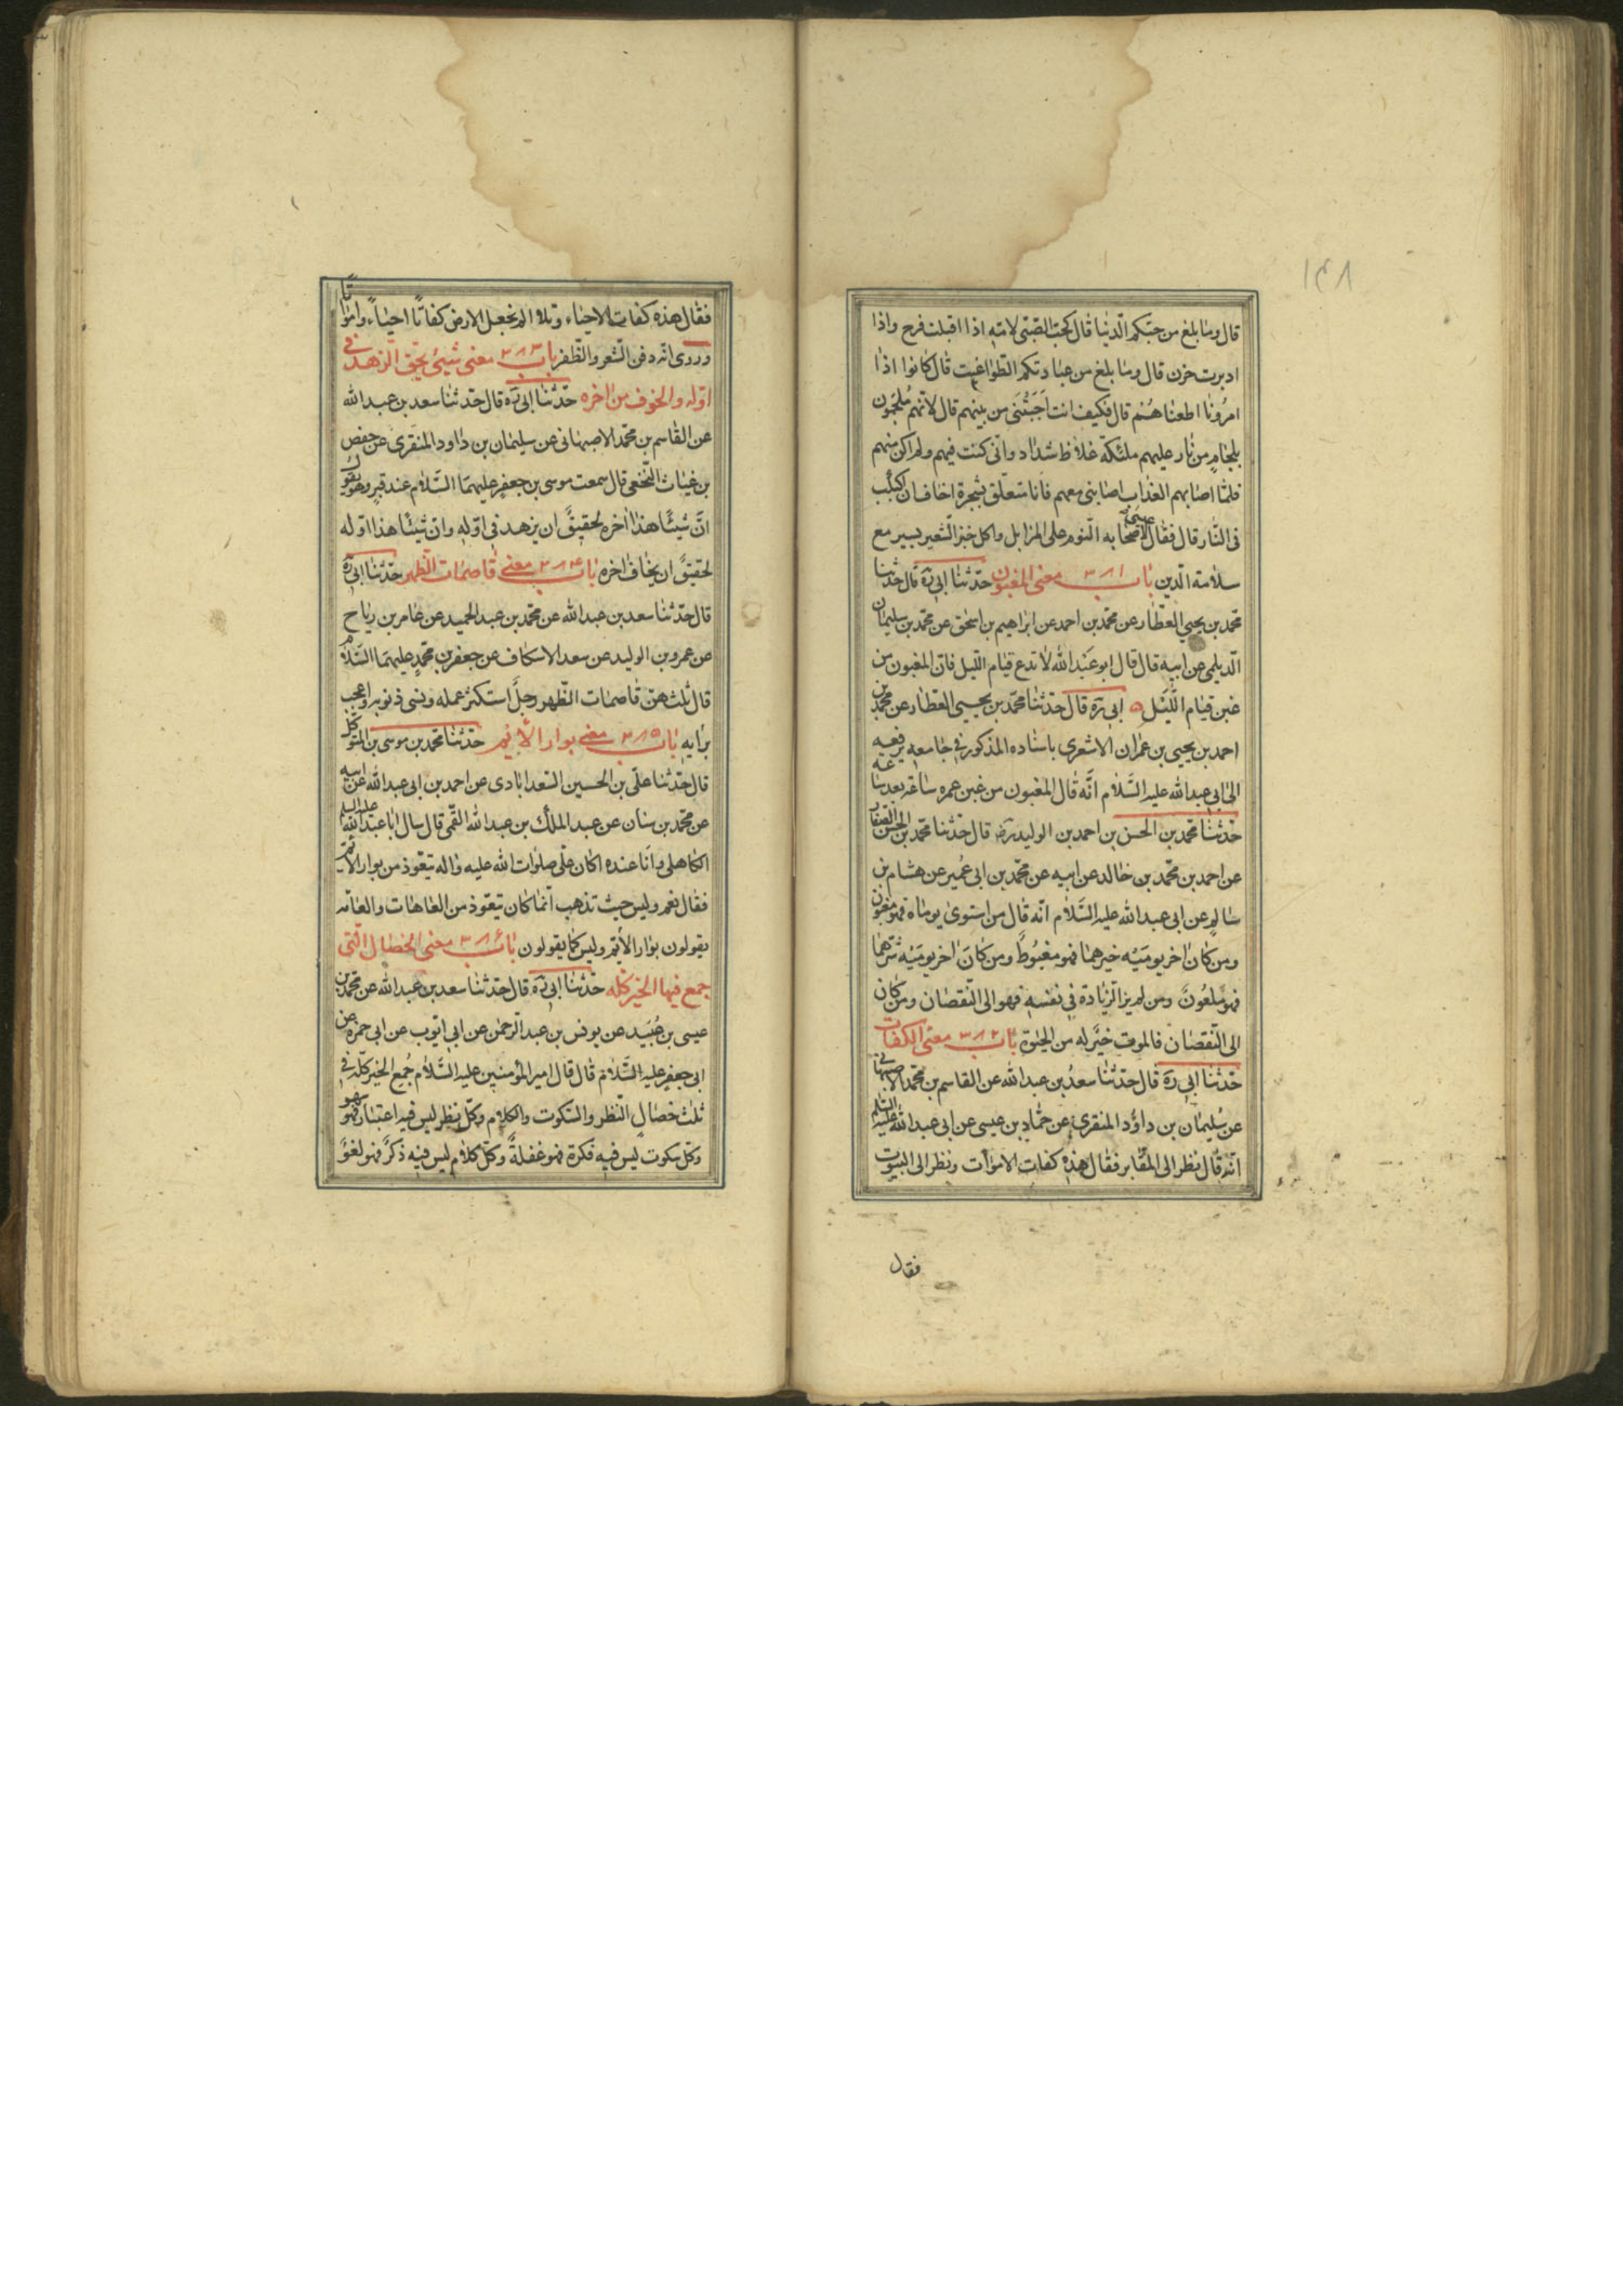 قال وما بلغ من حبكم الدنيا قال كحب الصبي لامه اذا اقبلت فرح واذا
ادبرت حزن قال وما بلغ من عبادتكم الطواغيت قال كانوا اذا
امرونا اطعناهم قال فكيف انت اجبتني من بينهم قال لانهم ملجمون
بلجام من نار عليهم ملئكة غلاظ شداد واني كنت فيهم ولم اكن منهم
فلما اصابهم العذاب اصابني معهم فانا متعلق بشجرة اخاف ان اكبكب
في النار قال فقال عيسى لاصحابه النوم على المزابل واكل خبز الشعير يسير مع
سلامة الدين باب ٣٨١ معنى المغبون حدثنا ابي ره قال حدثنا
محمد بن يحيى العطار عن محمد بن احمد عن ابراهيم بن اسحق عن محمد بن سليمان
الديلمي عن ابيه قال قال ابو عبد الله لا تدع قيام الليل فان المغبون من
غبن قيام الليل ابي ره قال حدثنا محمد بن يحيى العطار عن محمد بن
احمد بن يحيى بن عمران الاشعري باسناده المذكور في جامعه يرفعه
الى ابي عبد الله عليه السلام انه قال المغبون من غبن عمره ساعة بعد ساعة
حدثنا محمد بن الحسن بن احمد بن الوليد رض قال حدثنا محمد بن الحسن الصفار
عن احمد بن محمد بن خالد عن ابيه عن محمد بن ابي عمير عن هشام بن
سالم عن ابي عبد الله عليه السلام انه قال من استوى يوماه فهو مغبون
ومن كان اخر يوميه خيرهما فهو مغبوط ومن كان اخر يوميه شرهما
فهو ملعون ومن لم ير الزيادة في نفسه فهو الى النقصان ومن كان
الى النقصان فالموت خير له من الحيوة باب ٣٨٢ معنى الكفات
حدثنا ابي ره قال حدثنا سعد بن عبد الله عن القاسم بن محمد الاصبهاني
عن سليمان بن داود المنقري عن حماد بن عيسى عن ابي عبد الله عليه السلم
انه قال نظر الى المقابر فقال هذه كفات الاموات ونظر الى البيوت
فقال
فقال هذه كفات الاحياء وتلا الم نجعل الارض كفاتا احياء وامواتا
وروى انه دفن الشعر والظفر باب ٣٨٣ معنى شيئ يحق الزهد في
اوله والخوف من اخره حدثنا ابي ره قال حدثنا سعد بن عبد الله
عن القاسم بن محمد الاصبهاني عن سليمان بن داود المنقري عن حفص
بن غياث النخعي قال سمعت موسى بن جعفر عليهما السلام عند قبر وهو يقول
ان شيئا هذا اخره لحقيق ان يزهد في اوله وان شيئا هذا اوله
لحقيق ان يخاف اخره باب ٣٨٤ معنى قاصمات الظهر حدثنا ابي ره
قال حدثنا سعد بن عبد الله عن محمد بن عبد الحميد عن عامر بن رياح
عن عمرو بن الوليد عن سعد الاسكاف عن جعفر بن محمد عليهما السلام
قال ثلث هن قاصمات الظهر رجل استكثر عمله ونسي ذنوبه واعجب
برايه باب ٣٨٥ معنى بوار الأيم حدثنا محمد بن موسى بن المتوكل
قال حدثنا علي بن الحسين السعدابادي عن احمد بن ابي عبد الله عن ابيه
عن محمد بن سنان عن عبد الملك بن عبد الله القمي قال سال ابا عبد الله عليه السلم
الكاهلي وانا عنده اكان علي صلوات الله عليه واله يتعوذ من بوار الأيم
فقال نعم وليس حيث تذهب انما كان يتعوذ من العاهات والعامة
يقولون بوار الأيم وليس كما يقولون باب ٣٨٦ معنى الخصال التي
جمع فيها الخير كله حدثنا ابي ره قال حدثنا سعد بن عبد الله عن محمد بن
عيسى بن عبيد عن يونس بن عبد الرحمن عن ابي ايوب عن ابي حمزة عن
ابي جعفر عليه السلام قال قال امير المؤمنين عليه السلام جمع الخير كله في
ثلث خصال النظر والسكوت والكلام وكل نظر ليس فيه اعتبار فهو سهو
وكل سكوت ليس فيه فكرة فهو غفلة وكل كلام ليس فيه ذكر فهو لغو